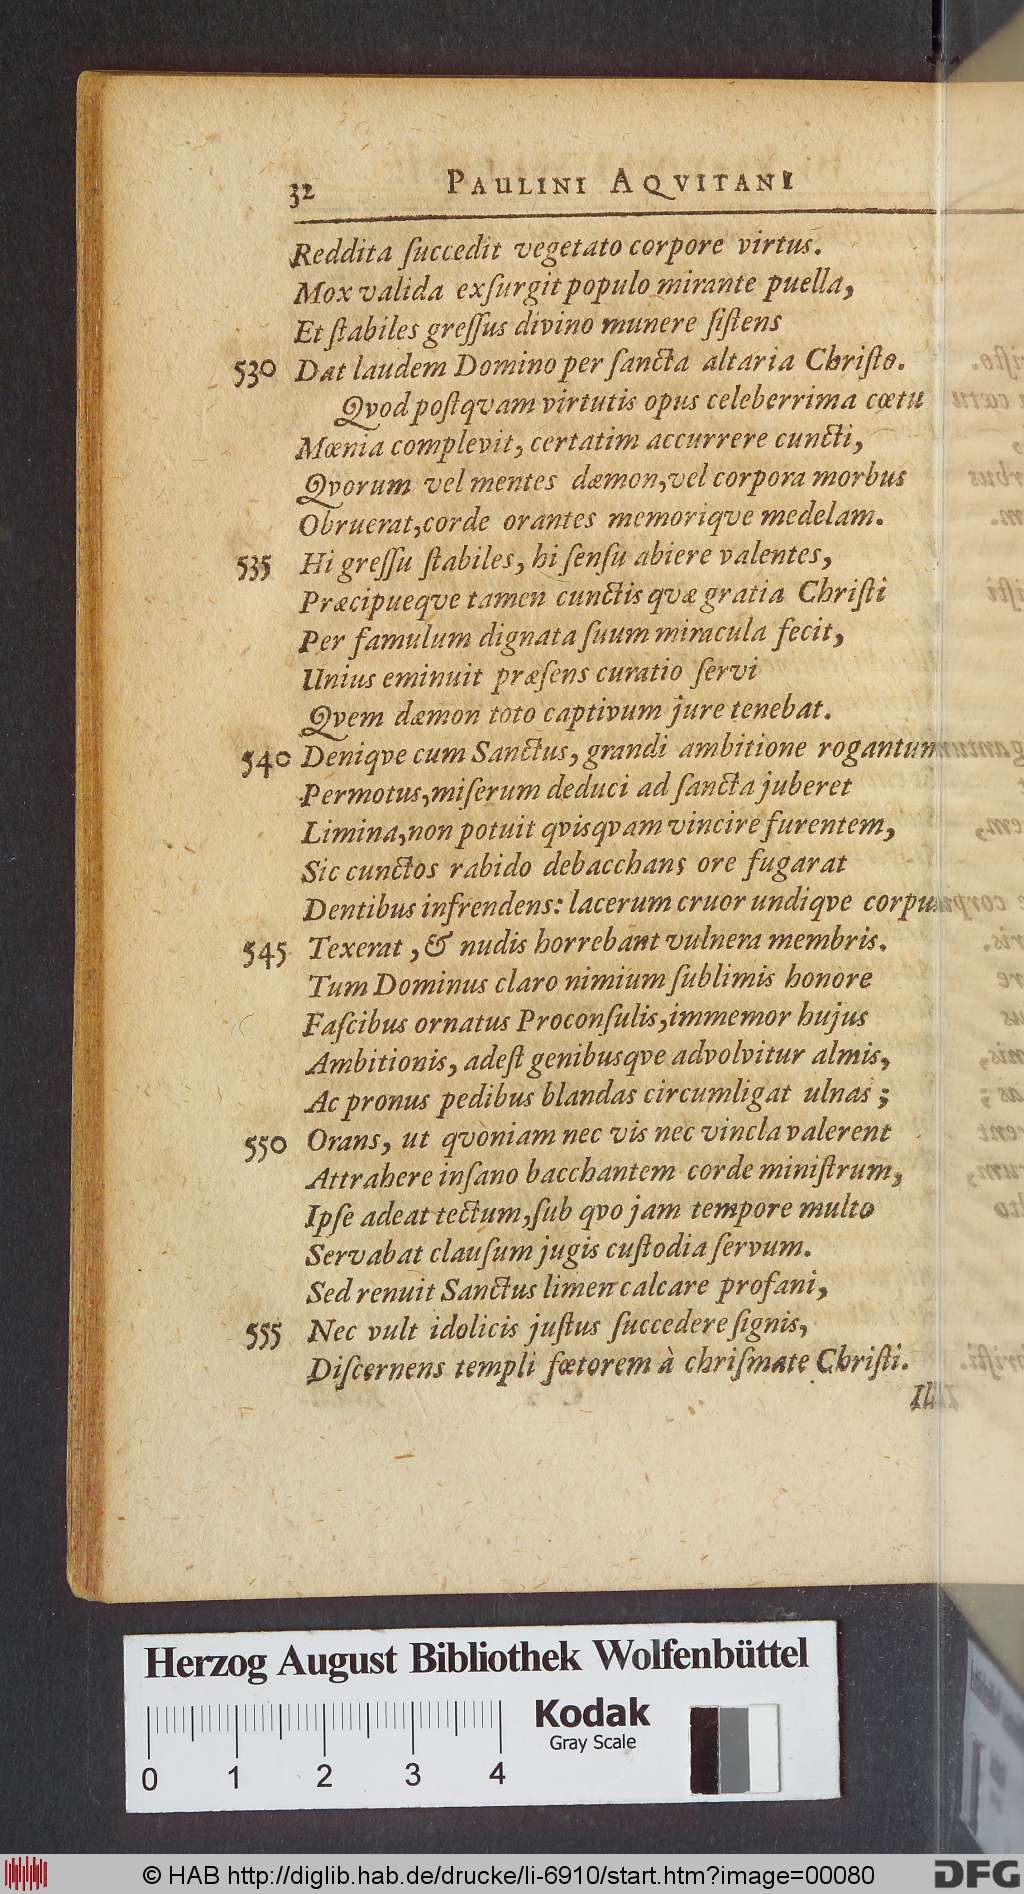 32 PAULINI AQVITANI
Reddita ſuccedit vegetato corpore virtus.
Mox valida exſurgit populo mirante puella,
Et ſtabiles greſſus divino munere ſiſtens
530 Dat laudem Domino per ſancta altaria Chriſto.
Qvod poſtqvam virtutis opus celeberrima cœtu
Mœnia complevit, certatim accurrere cuncti,
Qvorum vel mentes dæmon, vel corpora morbus
Obruerat, corde orantes memoriqve medelam.
535 Hi greſſu ſtabiles, hi ſenſu abiere valentes,
Præcipueqve tamen cunctis qvæ gratia Chriſti
Per famulum dignata ſuum miracula fecit,
Unius eminuit præſens curatio ſervi
Qvem dæmon toto captivum jure tenebat.
540 Deniqve cum Sanctus, grandi ambitione rogantum
Permotus, miſerum deduci ad ſancta juberet
Limina, non potuit qvisqvam vincire furentem,
Sic cunctos rabido debacchans ore fugarat
Dentibus infrendens: lacerum cruor undiqve corpus
545 Texerat, & nudis horrebant vulnera membris.
Tum Dominus claro nimium ſublimis honore
Faſcibus ornatus Proconſulis, immemor hujus
Ambitionis, adeſt genibusqve advolvitur almis,
Ac pronus pedibus blandas circumligat ulnas;
550 Orans, ut qvoniam nec vis nec vincla valerent
Attrahere inſano bacchantem corde miniſtrum,
Ipſe adeat tectum, ſub qvo jam tempore multo
Servabat clauſum jugis cuſtodia ſervum.
Sed renuit Sanctus limen calcare profani,
555 Nec vult idolicis juſtus ſuccedere ſignis,
Diſcernens templi fœtorem à chriſmate Chriſti.
Herzog August Bibliothek Wolfenbüttel
Kodak
Gray Scale
0 1 2 3 4
© HAB http://diglib.hab.de/drucke/li-6910/start.htm?image=00080
DFG